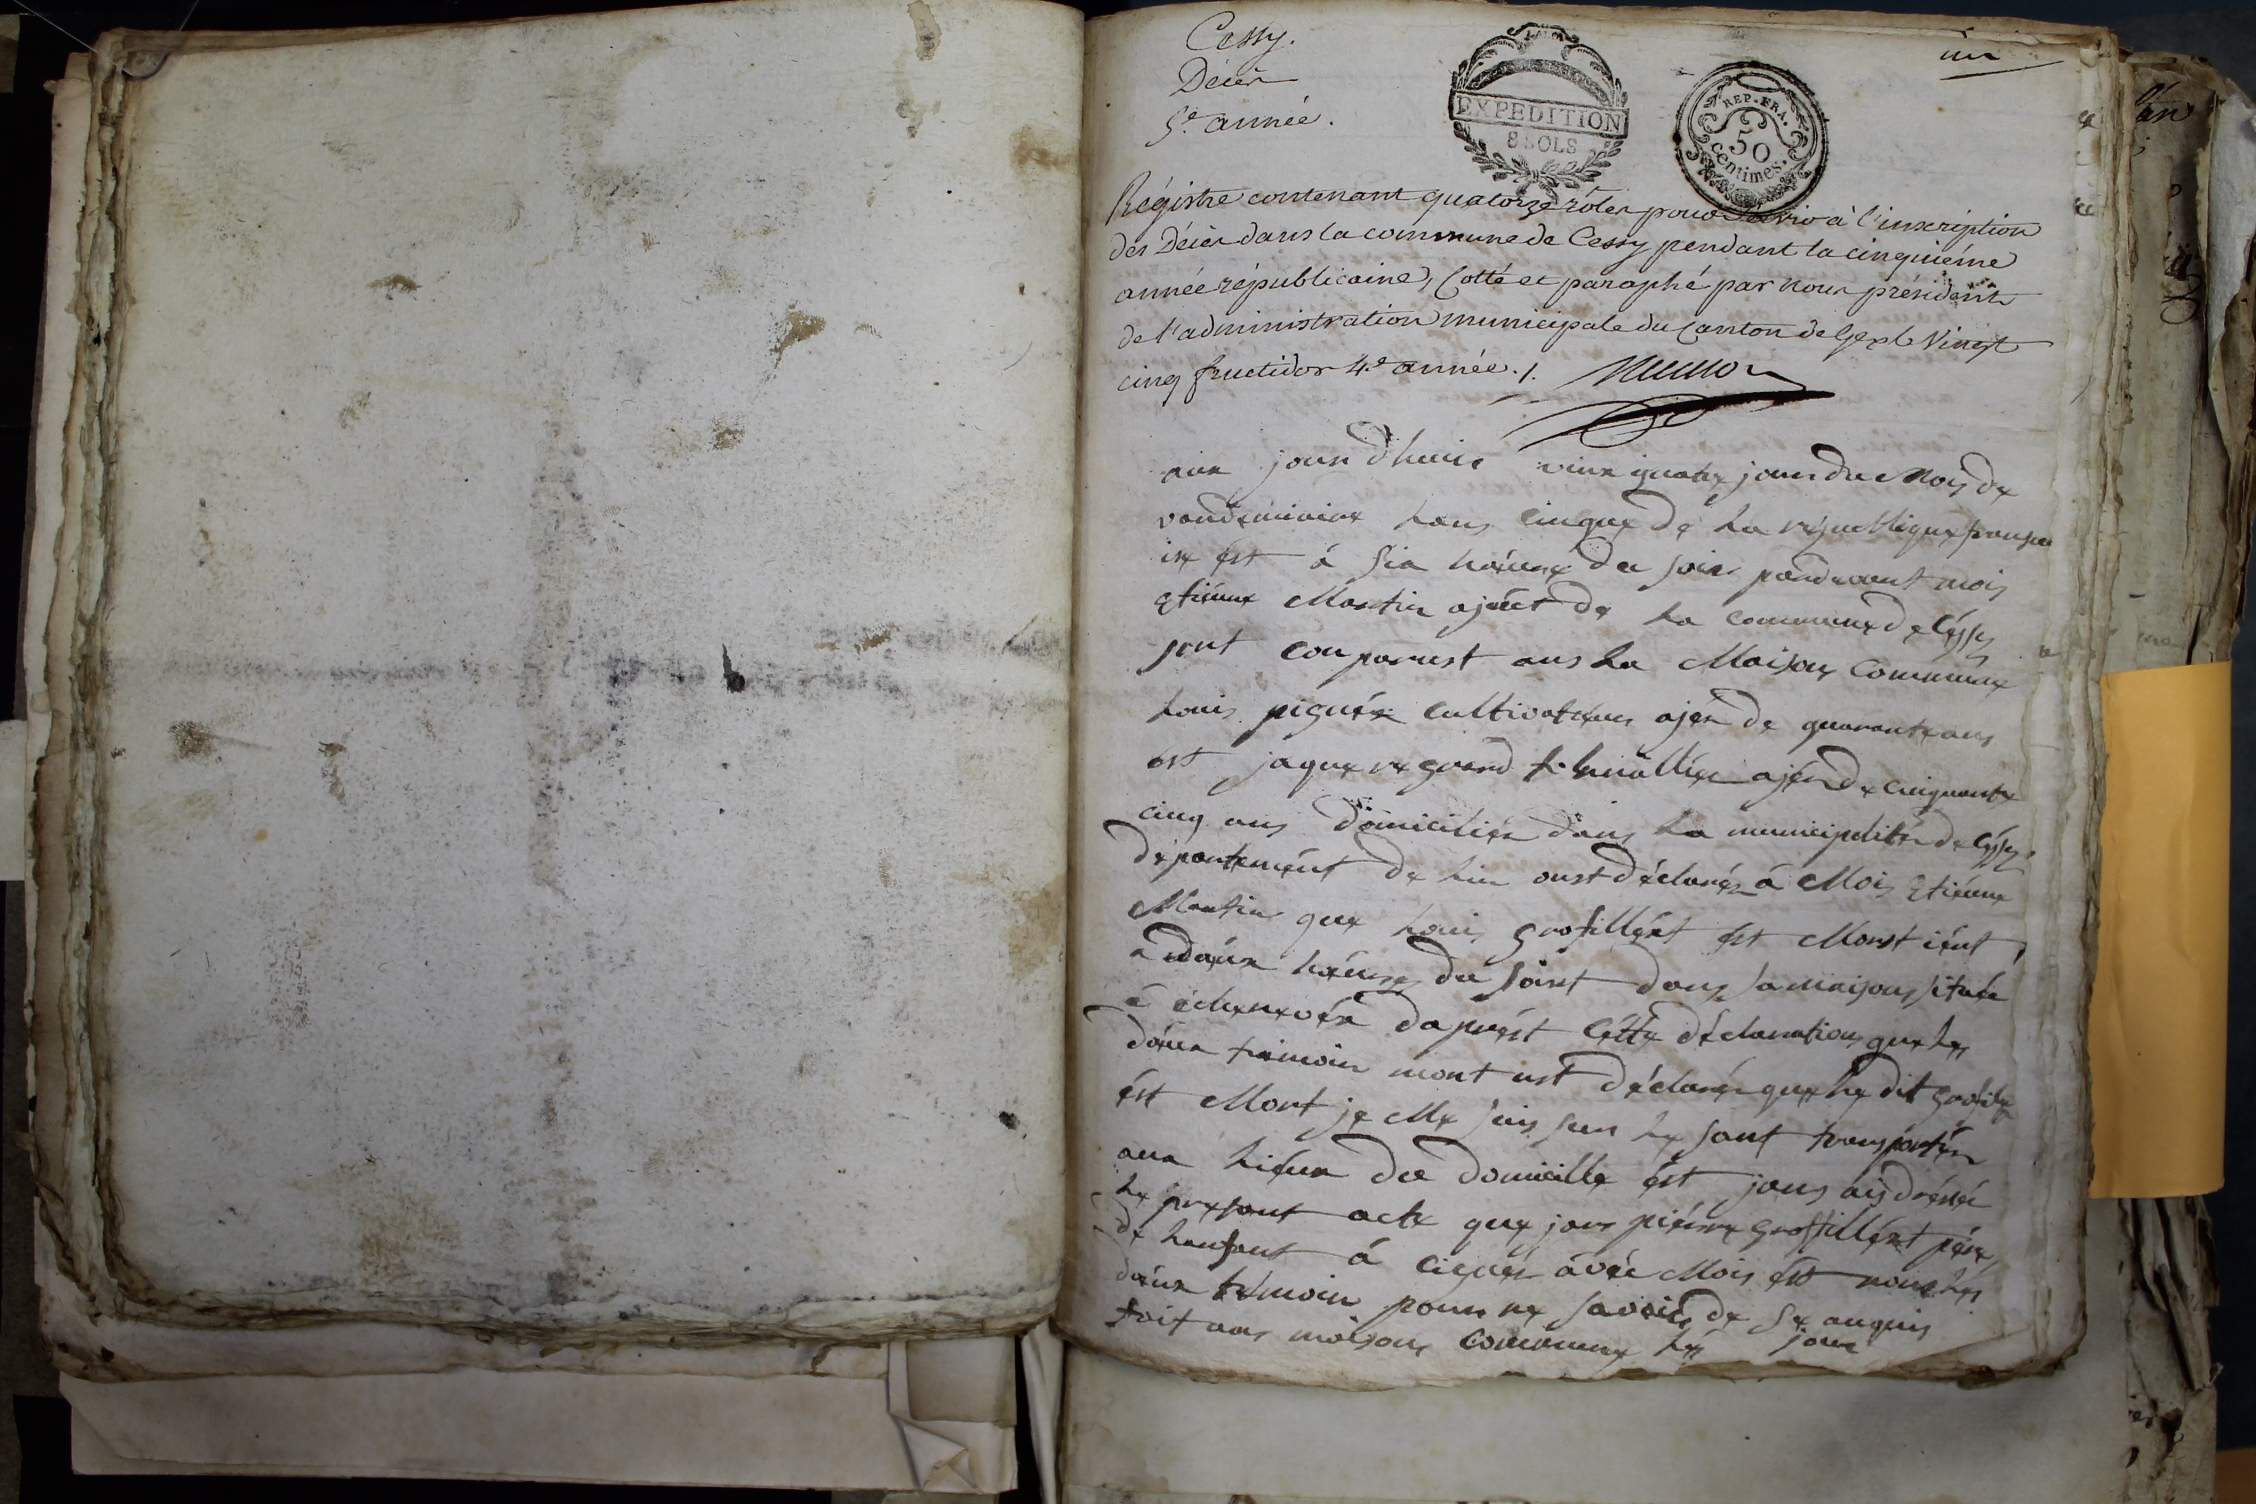 Cessy.
un
Décès
5.e année.
EXPEDITION
8 SOLS
REP. FRA.
50
centimes.
Régistre contenant quatorze rôles pour servir à l'inscription
des Décès dans la commune de Cessy pendant la cinquiéme
année républicaine, Cotté et paraphé par nous président
de l'administration municipale du Canton de Gex le Vingt
cinq fructidor 4.e année ./.
aux jour d'huis vint quatre jour du Mois de
vandemiaire lans cinque de la republique fransa
ise est à six heures du soir pardevant mois
Etienne Martin ajoect de la commune de Céssy
sont comparust aus la Maison Commune
Louis pignér cultivateur ajér de quarante ans
est jaque regard ajér de cinquante
cinq ans domiciliér dans la municipalitér de Céssy
département de lin onst déclarér à Mois Etienne
Martin que Louis grosillért est Morst
a doeux hoeures du soirt dans sa maisons situéé
à echenevéx daprést cétte déclarations que les
doeux temoin mont ust déclarér que le dit grosiler
est Mort je Me suis sur le sant transportér
aux lieux du domicille ést jans ais dréssé
le present acte que jans piérre grossillért pére
de lenfant à cignér avéc Mois est nous lés
doeux témoin pour ne savoir de se anquis
foit aus maisons commune lés jour